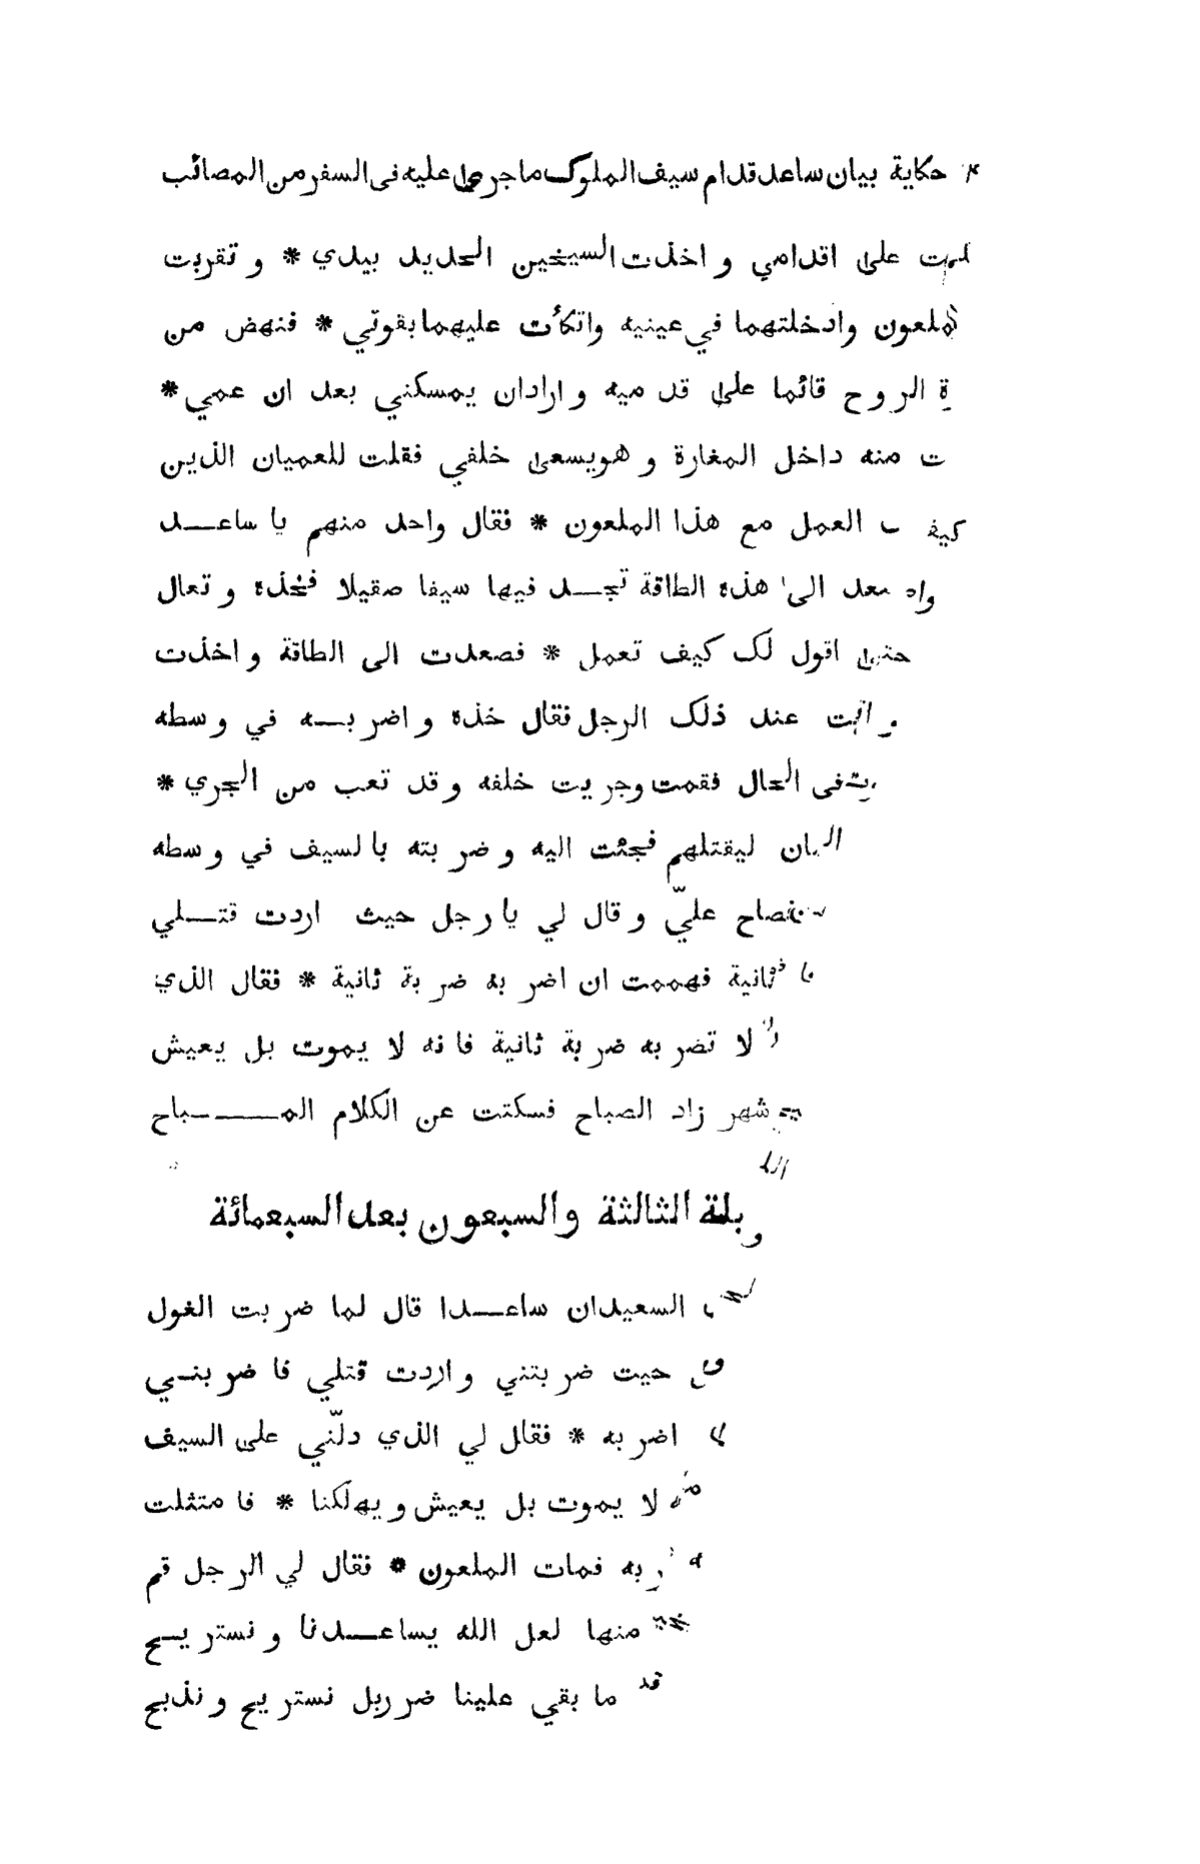 حكاية بيان ساعد قدام سيف الملوك ما جرى عليه فى السفر من المصائب
على اقدامي و اخذت السيخين الحديد بيدي * و تقربت
وادخلتهما في عينيه واتكأت عليهما بقوتي * فنهض من
الروح قائما على قد ميه و ارادان يمسكني بعد ان عمي *
ت منه داخل المغارة و هويسعى خلفي فقلت للعميان الذين
كيف العمل مع هذا الملعون * فقال واحد منهم يا ساعد
الى هذه الطاقة تجد فيها سيفا صقيلا فخذه و تعال
حتى اقول لك كيف تعمل * فصعدت الى الطاقة و اخذت
عند ذلك الرجل فقال خذه و اضربه في وسطه
فى الحال فقمت وجريت خلفه و قد تعب من الجري *
ليقتلهم فجئت اليه و ضربته بالسيف في وسطه
فصاح عليّ و قال لي يا رجل حيث اردت قتلي
ثانية فهممت ان اضربه ضربة ثانية * فقال الذي
لا تضربه ضربة ثانية فانه لا يموت بل يعيش
شهر زاد الصباح فسكتت عن الكلام المباح
الثالثة والسبعون بعد السبعمائة
السعيدان ساعدا قال لما ضربت الغول
حيت ضربتني و اردت قتلي فاضربني
اضربه * فقال لي الذي دلّني على السيف
لا يموت بل يعيش و يهلكنا * فامتثلت
به فمات الملعون * فقال لي الرجل قم
منها لعل الله يساعدنا و نستريح
قد ما بقي علينا ضرر بل نستريح و نذبح